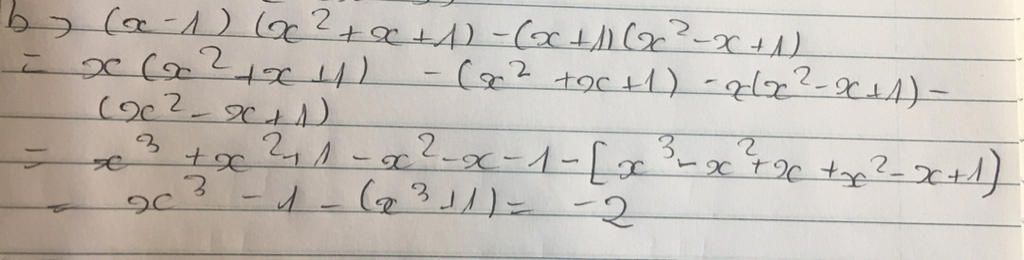 b> (x-1) (x²+x+1) -(x+1)(x²-x+1)
= x(x²+x+1) -(x²+x+1) -x(x²-x+1)-
(x²-x+1)
= x³+x²+1-x²-x-1-[x³-x²+x+x²-x+1]
= x³-1-(x³+1)= -2